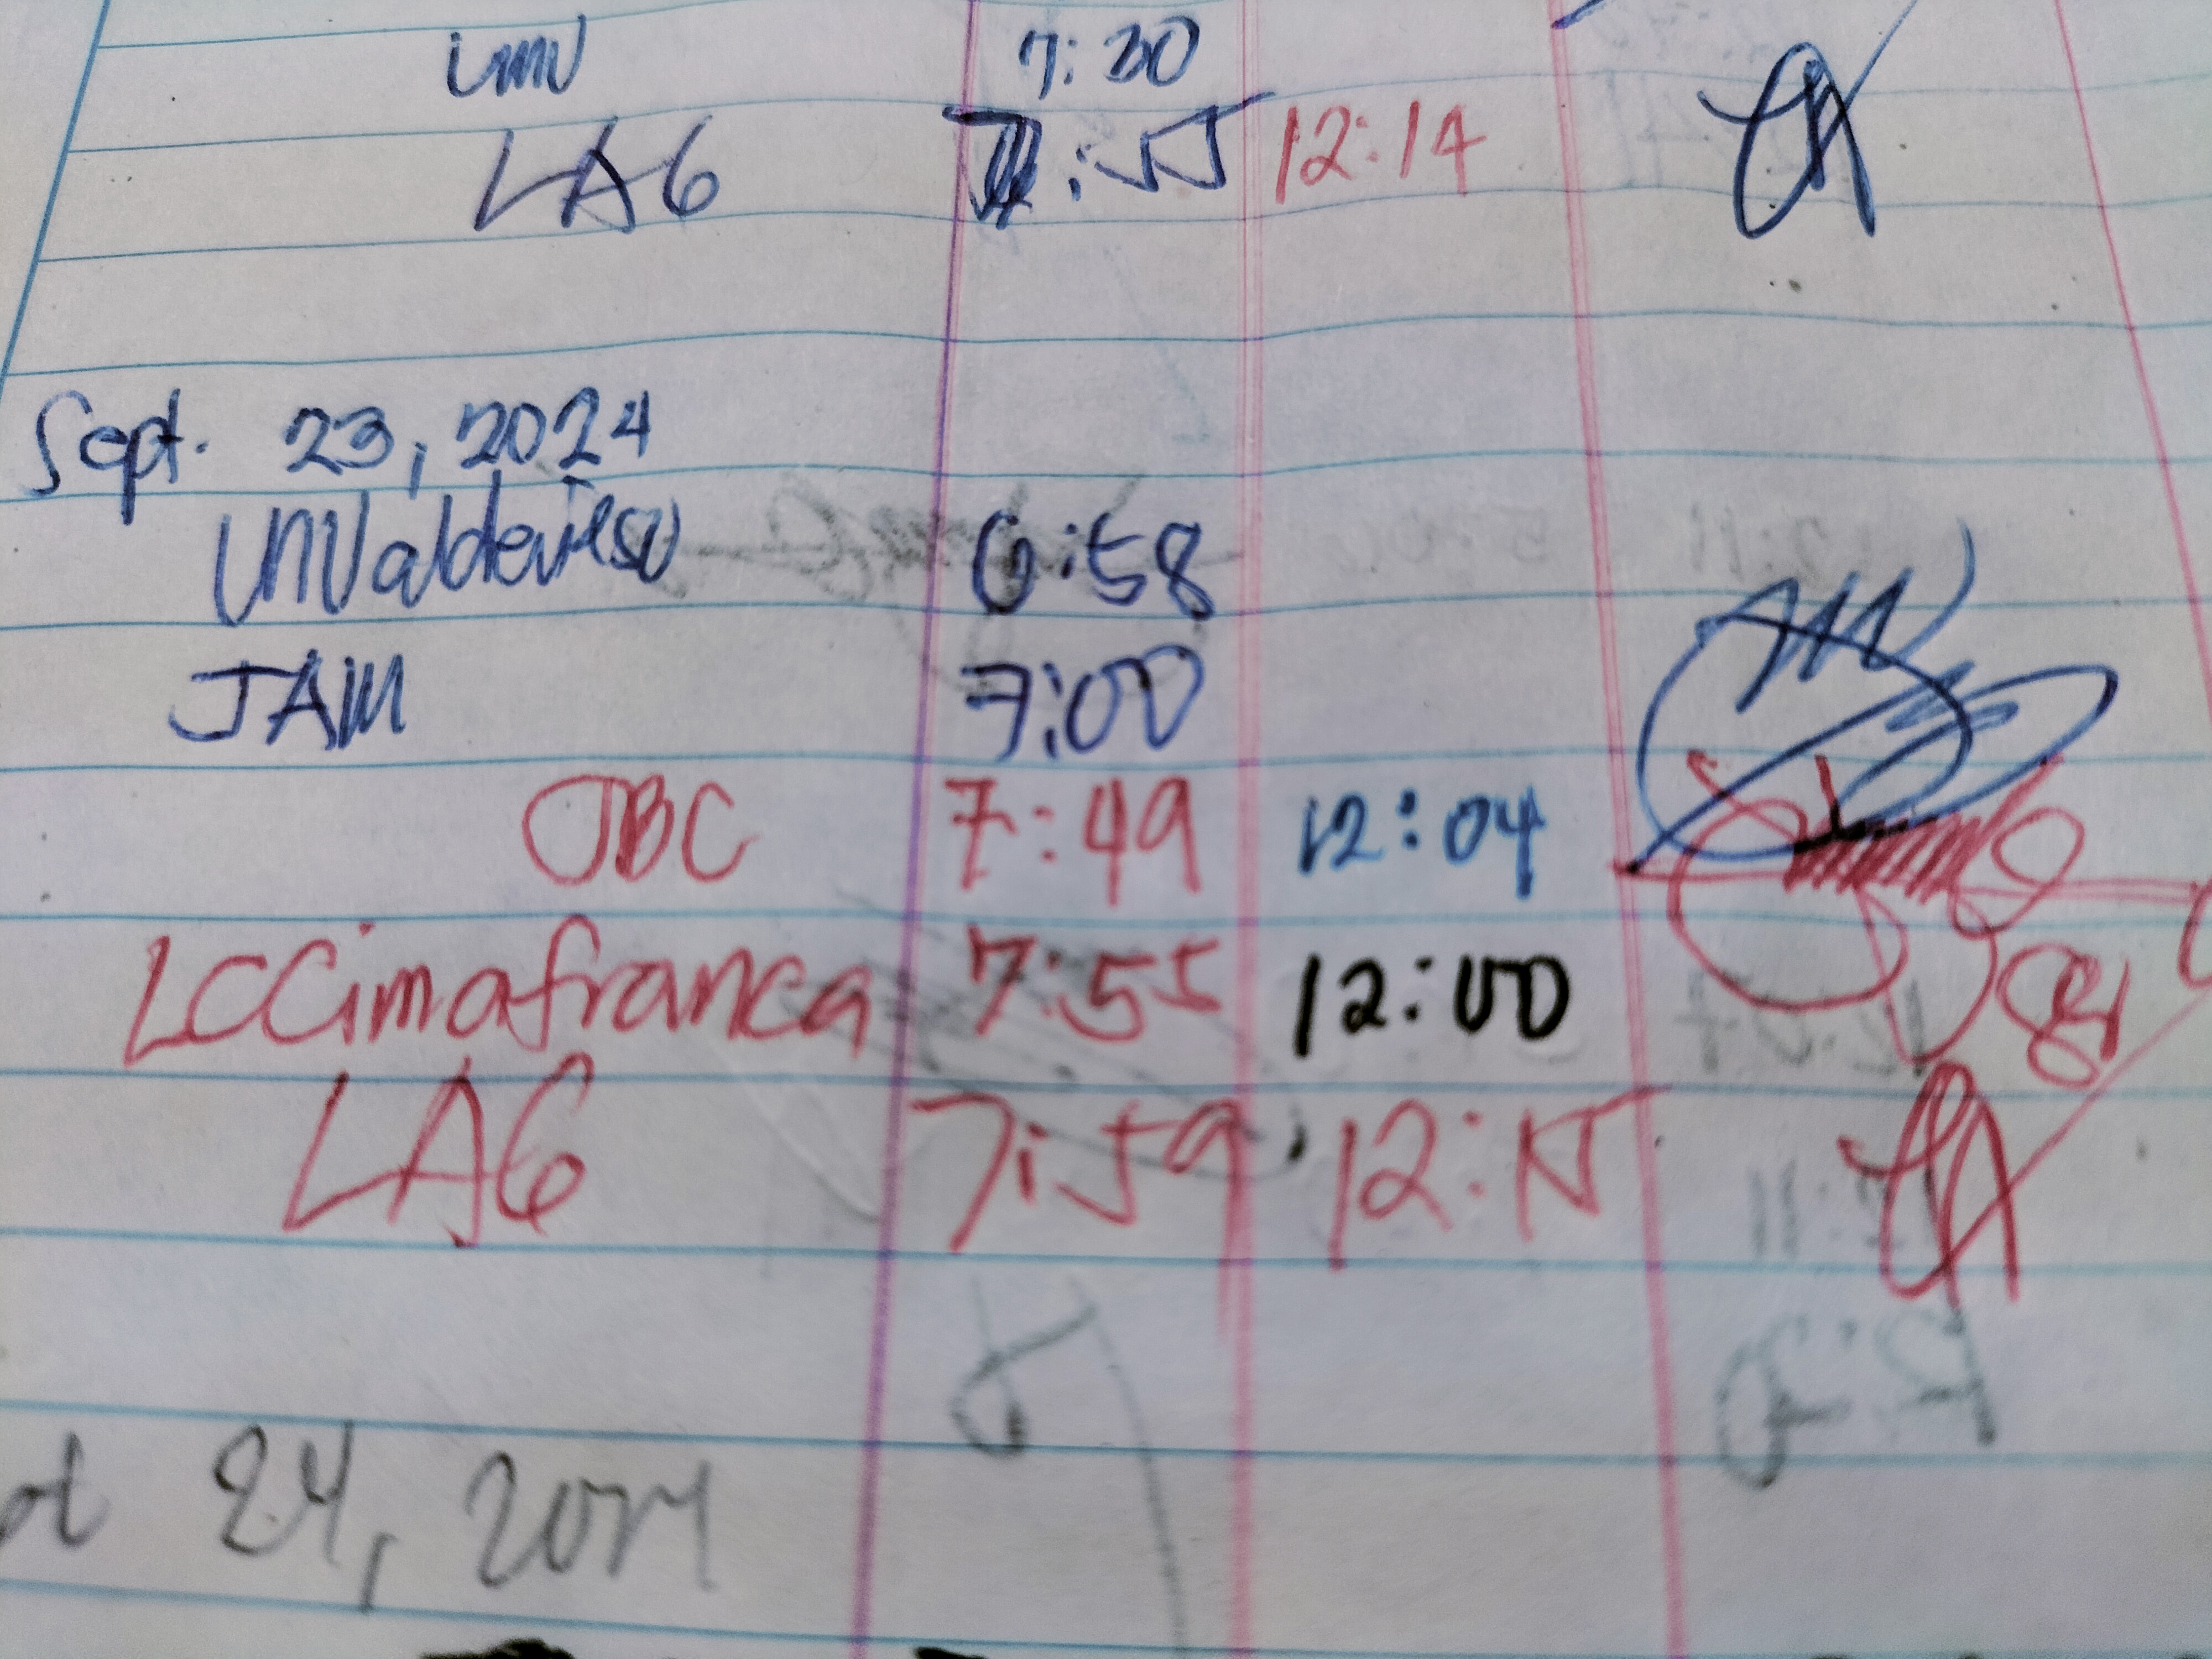 LMV 7:30
LAG 7:55 12:14
Sept. 23, 2024
LMValdevieso 6:58
JAM 7:00
JBC 7:49 12:04
LCCimafranca 7:55 12:00
LAG 7:59 12:15
24, 2024